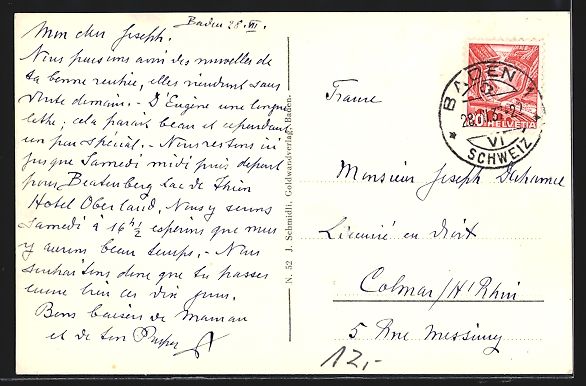 Baden 28. VI.
Mon cher Joseph.
Nous pensons avoir des nouvelles de
ta bonne rentrée, elles viendront sans
doute demain. - D'Eugène une longue
lettre; cela paraît beau et cependant
un peu spécial. - Nous restons ici
jusque Samedi midi puis départ
pour Beatenberg Lac de Thun
Hotel Oberland. Nous y serons
Samedi à 16 h 1/2 espérons que nous
y aurons beau temps. - Nous
souhaitons donc que tu passes
encore bien ces dix jours.
Bons baisers de Maman
et de ton
N. 52 J. Schmidli, Goldwandverlag, Baden.
BADEN 1
28. VI.
VI
SCHWEIZ
HELVETIA
France
Monsieur Joseph Duhamel
Licencié en droit
Colmar / Ht Rhin
5 Rue Messimy
12,-